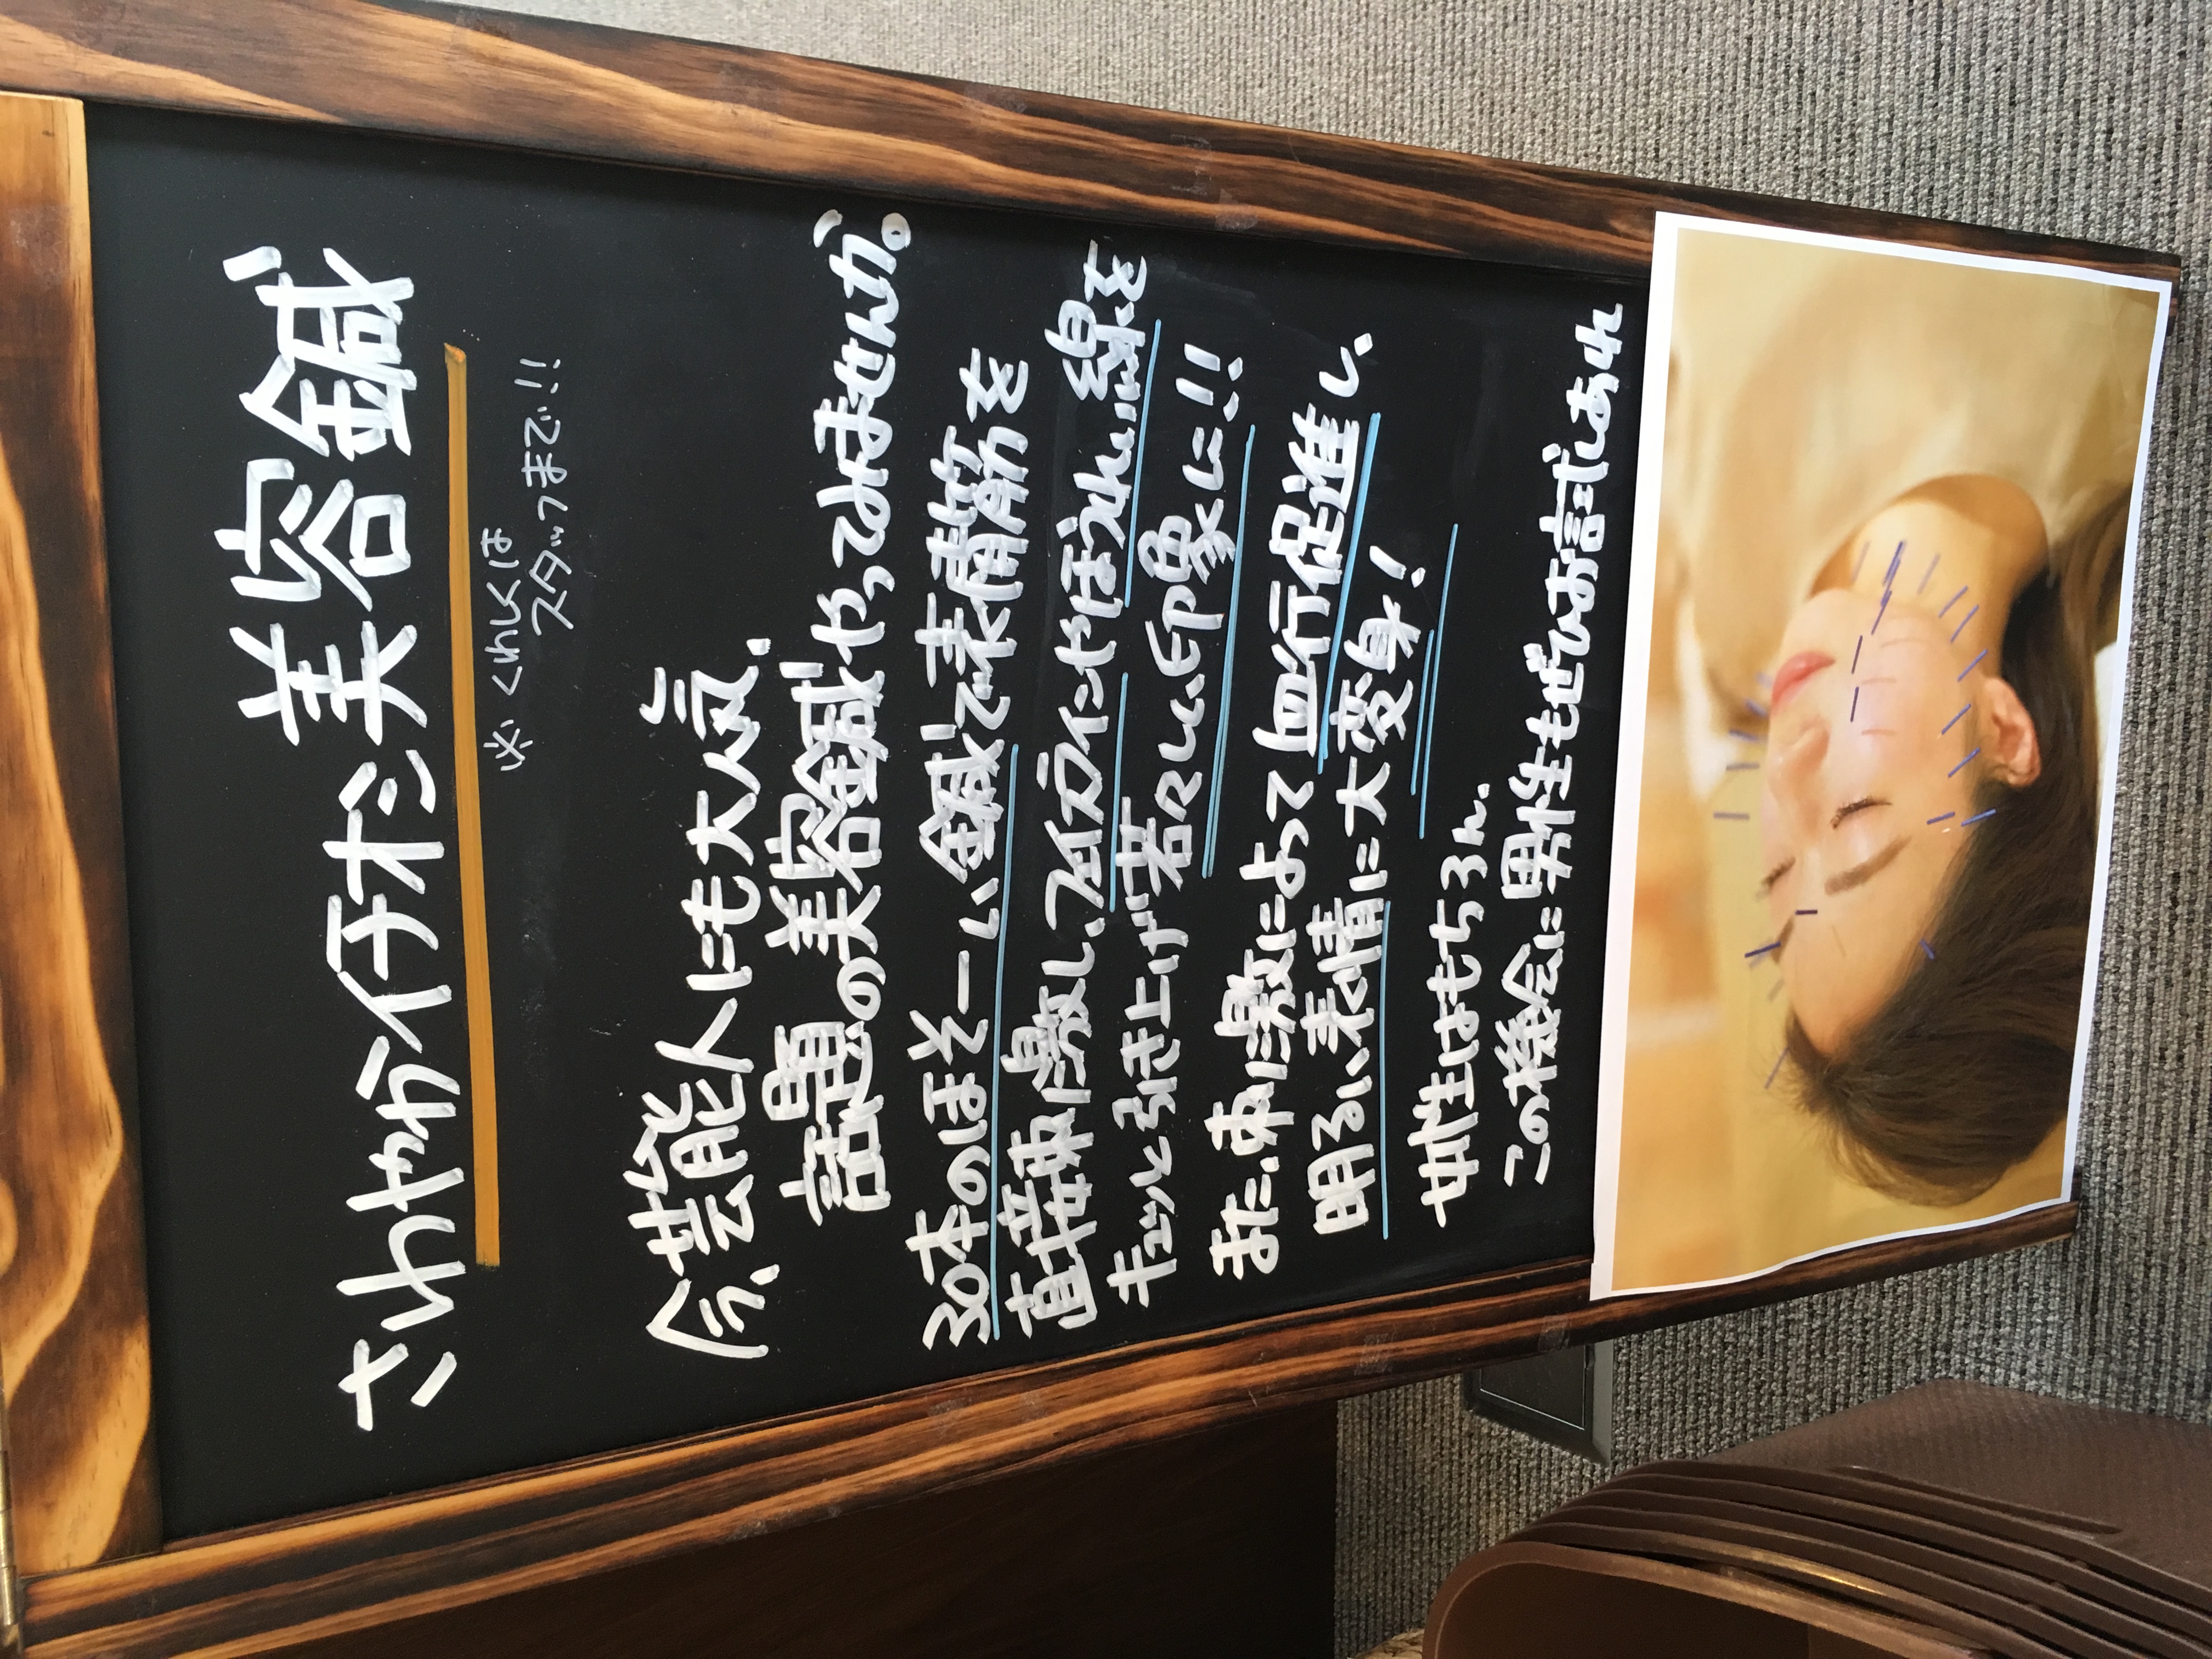 さわやか仔木ミ美容鍼
※くわしくは
スタッフまで!!
今、芸能人にも大人気、
話題の美容鍼やってみませんか。
30本のほそーい鍼で表情筋を
直接刺激し、フェイスラインやほうれい線を
キュッと引き上げ若々しい印象に!!
また、刺激によって血行促進し、
明るい表情に大変身!
女性はもちろん、
この機会に男性もぜひお試しあれ